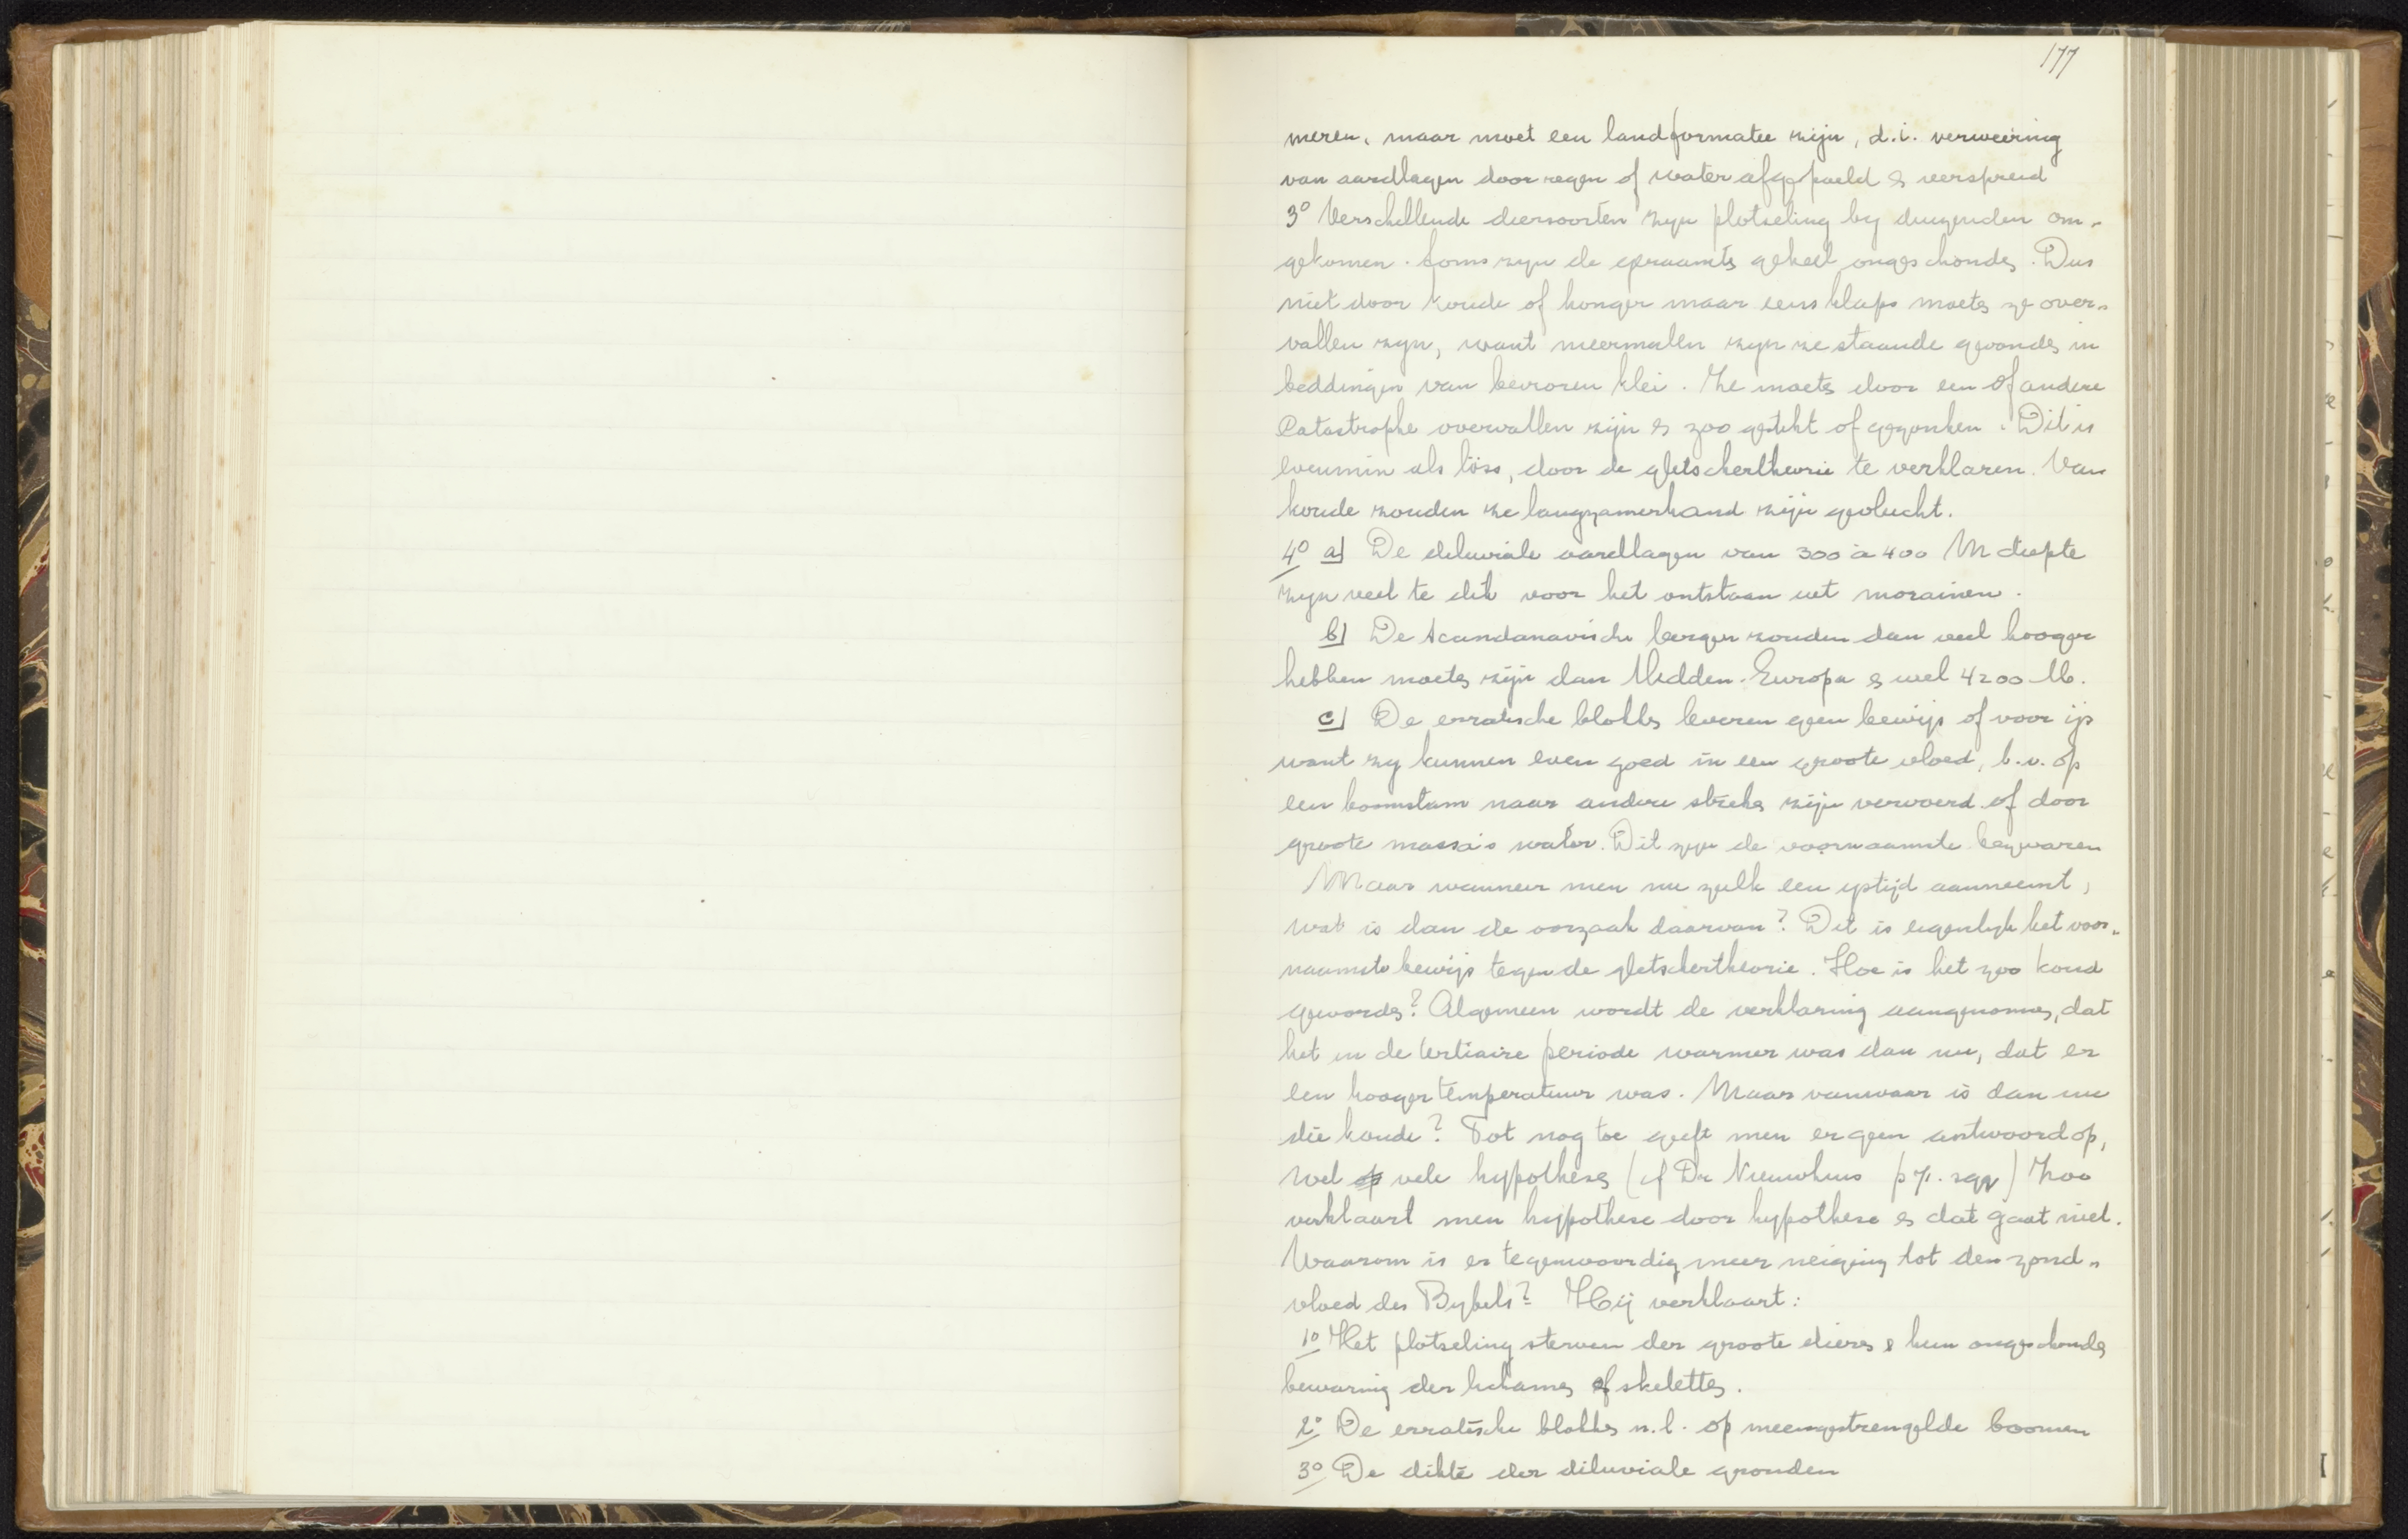 177
meren, maar moet een landformatie zijn, d.i. verweering
van aardlagen door regen of water afgespoeld & verspreid
3° Verschillende diersoorten zijn plotseling by duizenden om-
gekomen. Soms zyn de geraamts geheel ongeschonds. Dus
niet door koude of honger maar eensklaps moets ze over-
vallen zyn, want meermalen zyn ze staande gevonds in
beddingen van bevroren klei. Ze moets door een of andere
Catastrophe overvallen zijn & zoo gestikt of gezonken. Dit is
evenmin als löss, door de gletschertheorie te verklaren. Van
koude zouden ze langzamerhand zijn gevlucht.
4° a) De diluviale aardlagen van 300 à 400 M diepte
zyn veel te dik voor het ontstaan uit morainen.
b) De Scandanavische bergen zouden dan veel hooger
hebben moets zijn dan Midden-Europa & wel 4200 M.
c) De erratische blokks leveren geen bewijs of voor ijs
want zy kunnen even goed in een groote vloed, b.v. op
een boomstam naar andere streks zijn vervoerd of door
groote massa's water. Dit zyn de voornaamste bezwaren
Maar wanneer men nu zulk een ystijd aanneemt,
wat is dan de oorzaak daarvan? Dit is eigenlyk het voor-
naamste bewijs tegen de gletschertheorie. Hoe is het zoo koud
gewords? Algemeen wordt de verklaring aangenoms, dat
het in de tertiaire periode warmer was dan nu, dat er
een hooger temperatuur was. Maar vanwaar is dan nu
die koude? Tot nog toe geeft men er geen antwoord op,
wel vele hypotheses (cf Dr Nieuwhuis p 71. sqq) Zoo
verklaart men hypothese door hypothese & dat gaat niet.
Waarom is er tegenwoordig meer neiging tot den zond-
vloed des Bybels? Hij verklaart:
1° Het plotseling sterven der groote diers & hun ongeschonds
bewaring der lichams of skeletts.
2° De erratische blokks n.l. op ineengestrengelde boomen
3° De dikte der diluviale gronden